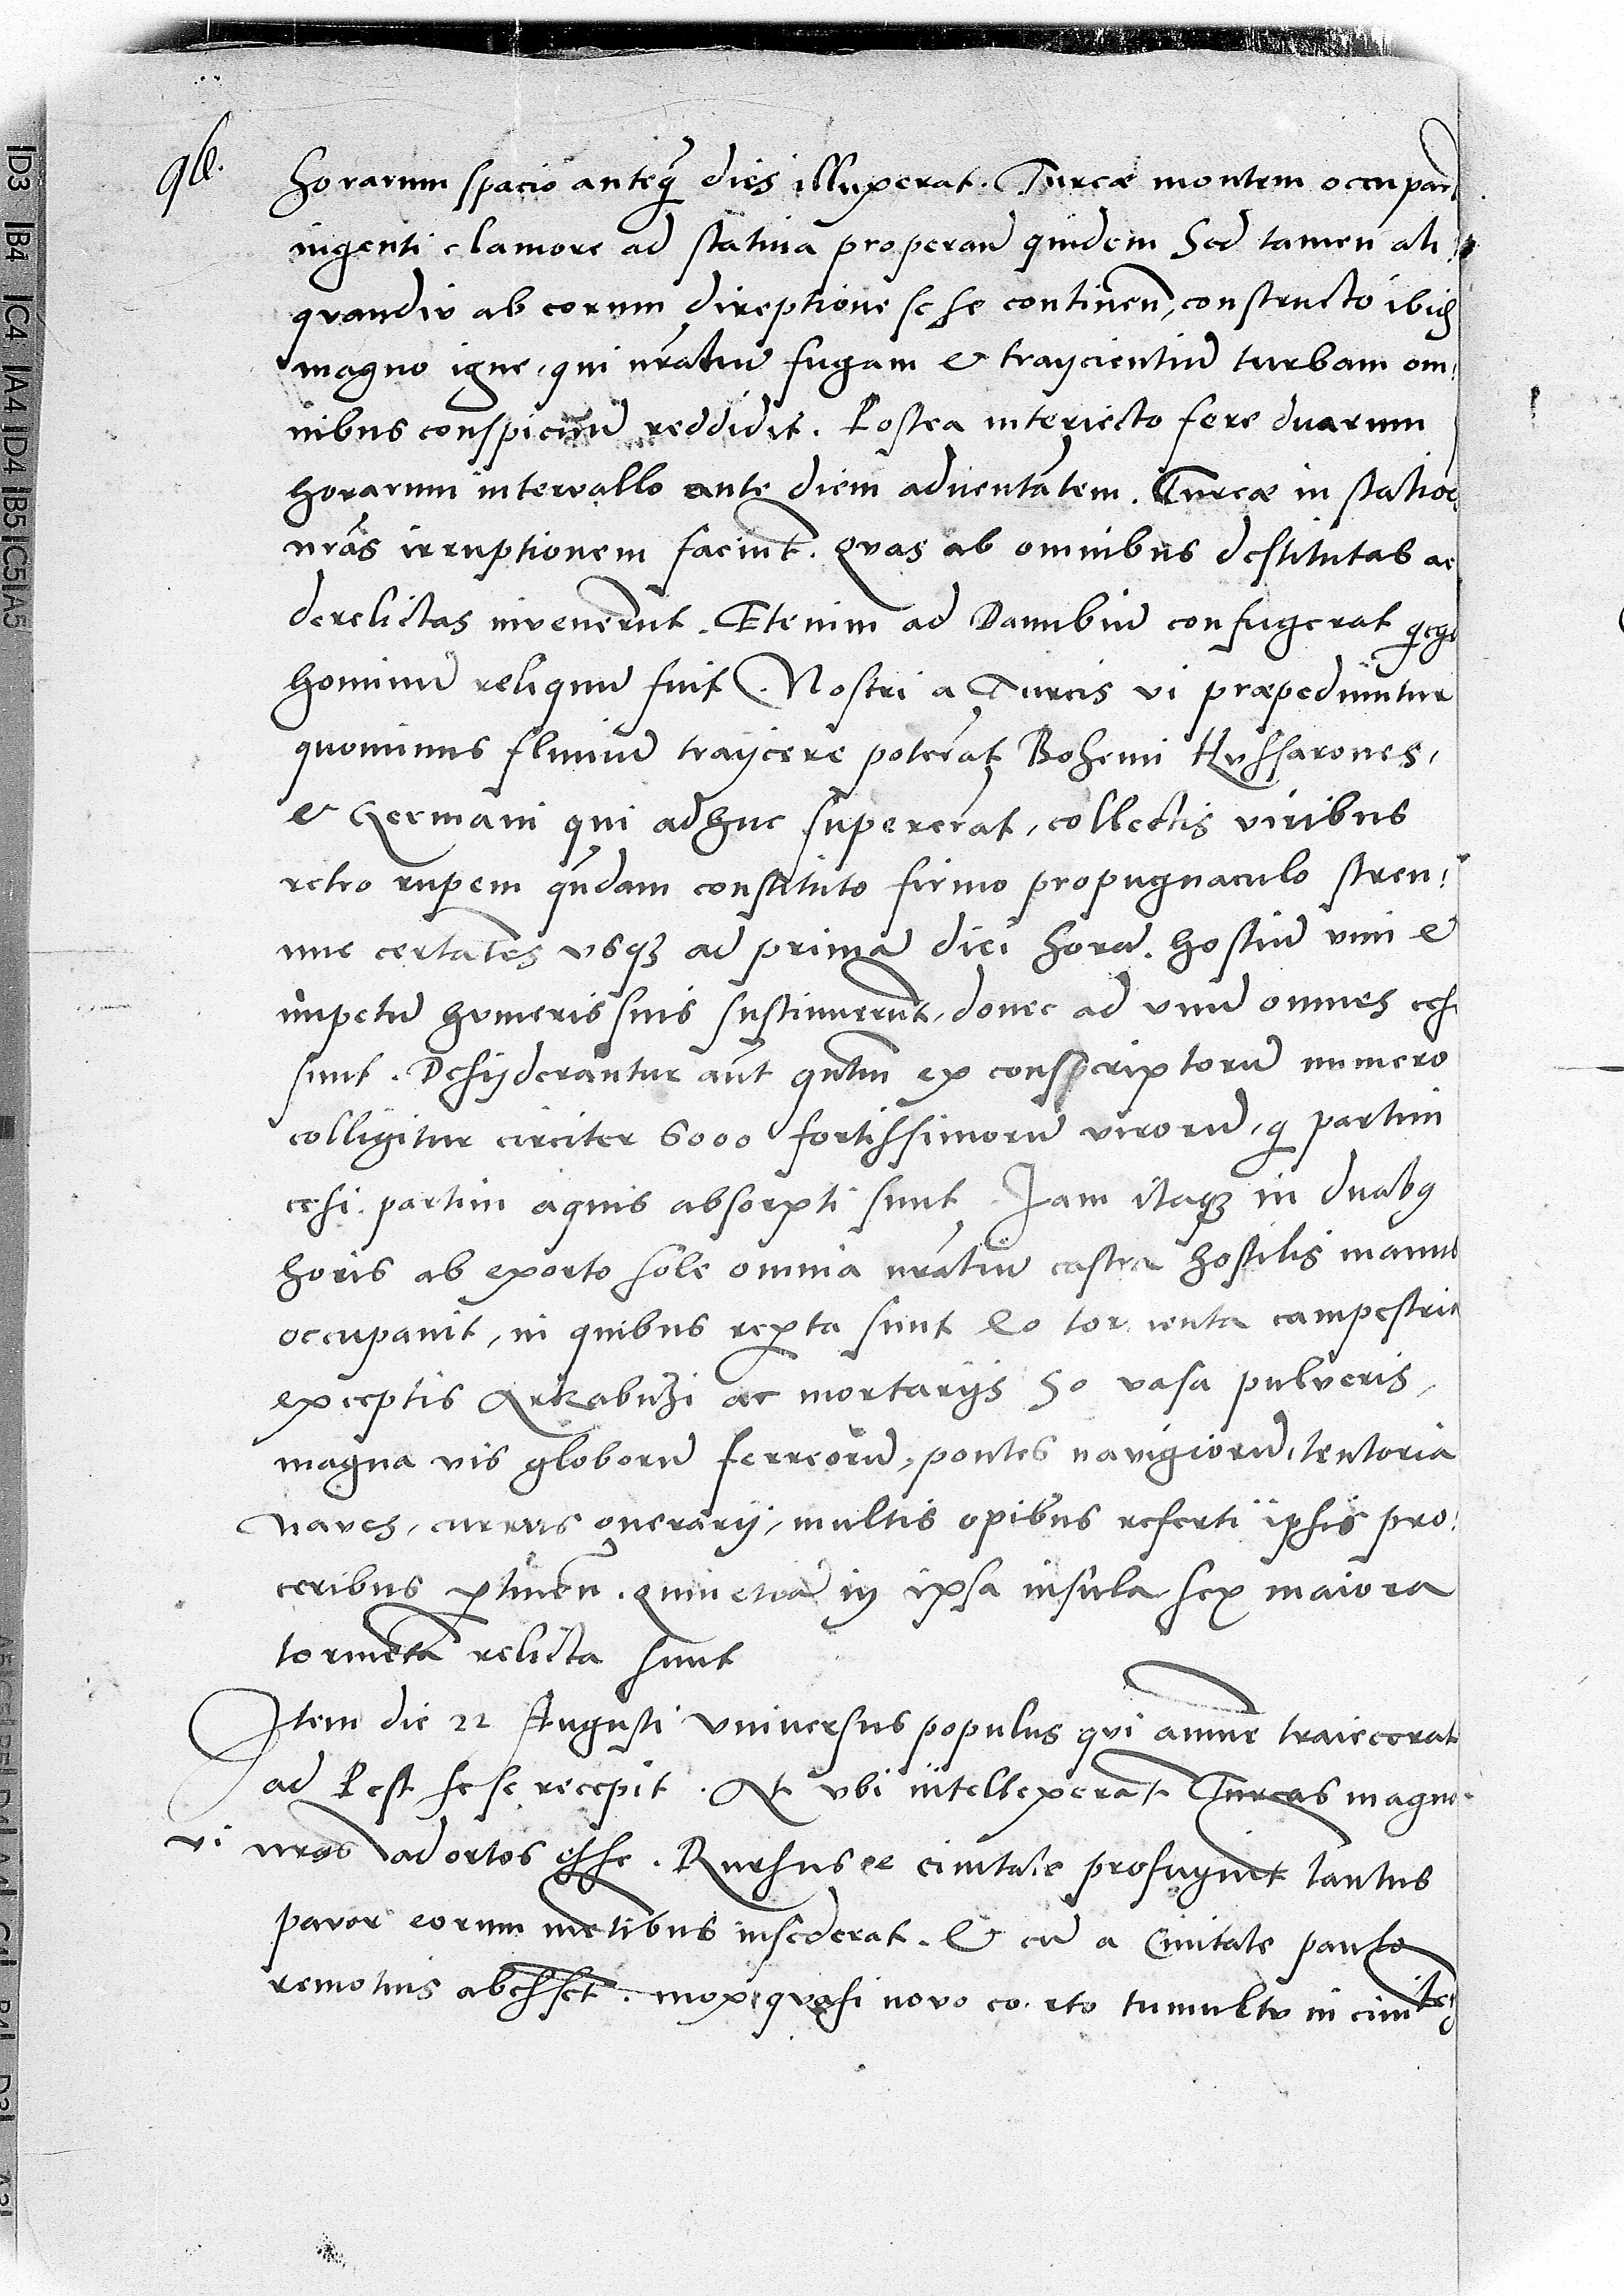 horarum spacio anteq̄ dies illuxerat. Turcæ montem occupar̄t
ingenti clamore ad statiua properan̄ quidem Sed tamen ali:
quandiu ab eorum direptione se se continen̄, constructo ibid̄
magno igne, qui nr̄atiū fugam & trayicientiū turbam om:
nibus conspicuū reddidit. Postea interiecto fere duarum
horarum interuallo ante diem aduentātem. Turcæ in statioēs
nrās irruptionem faciūt. Quas ab omnibus destitutas ac
derelictas invenerūt. Etenim ad Danubiū confugerat
hominū reliquū fuit. Nostri a Turcis vi præpediuntur
quominus fluuiū trayicere poterāt Bohemi Hussarones,
& Germani qui adhuc supererāt, collectis viribus
retro rupem quādam constituto firmo propugnaculo stren:
nue certātes vsq3 ad primā diei horā. hostiū vim &
impetū humeris suis sustinuerūt, donec ad vnū omnes cęsi
sunt. Desyderantur aūt quātm ex conscriptorū numero
colligitur circiter 6000 fortissimorū virorū, q̄ partim
cęsi. partim aquis absorpti sunt. Iam itaq3 in duab9
horis ab exorto sole omnia nr̄atiū castra hostilis manus
occupauit, in quibus rep̄ta sunt 60 tormenta campestria
exceptis Arkabuzi ac mortarijs 50 vasa pulueris,
magna vis globorū ferreorū, pontes navigiorū, tentoria
naves, currus onerarij, multis opibus referti ipsis pro:
ceribus p̄tinen̄. quin etiā in ipsa insula sex maiora
tormēta relicta sunt
Item die 22 Augusti vniuersus populus qui amne traiecerat
ad Pest se se recepit. At vbi intellexerāt Turcas magna
vi nr̄os adortos esse. Rursus ex ciuitate profugiūt tantus
pavor eorum mētibus insederat. & cū a Ciuitate paulo
remotius abessēt. mox quasi novo coorto tumultu in ciuitatē